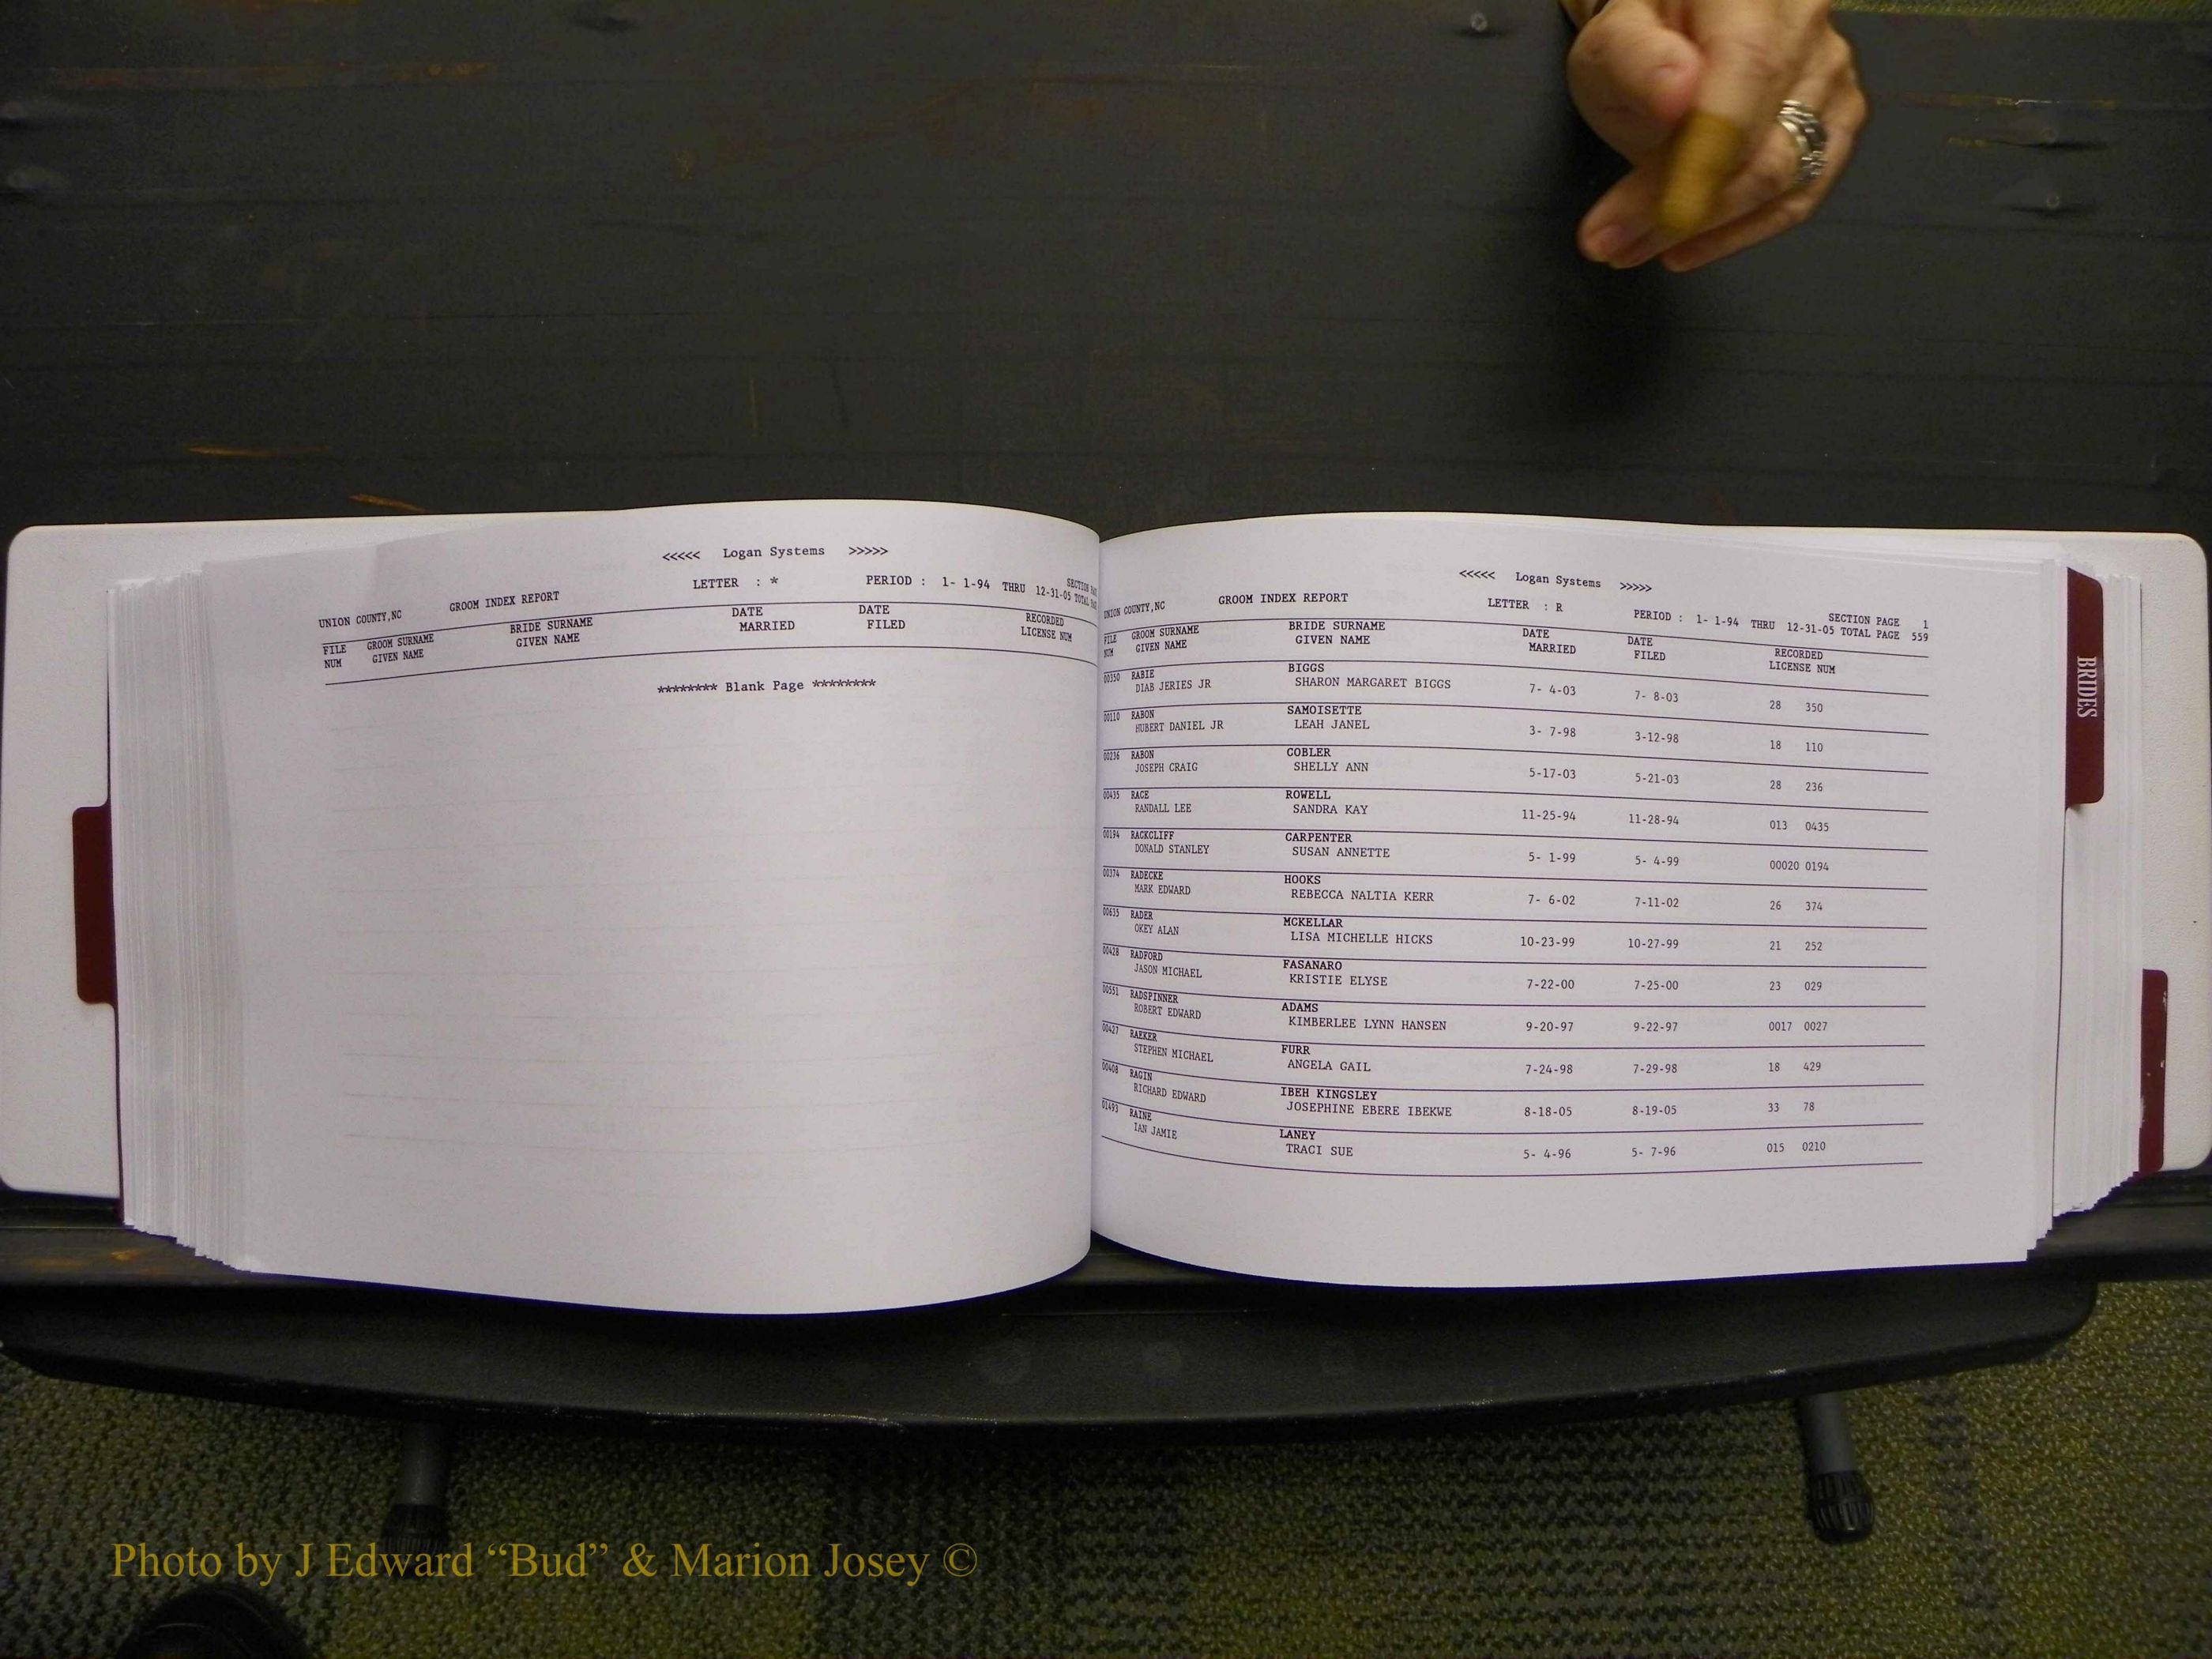 <<<<< Logan Systems >>>>>
UNION COUNTY,NC GROOM INDEX REPORT LETTER : * PERIOD : 1- 1-94 THRU 12-31-05 SECTION
TOTAL
FILE GROOM SURNAME BRIDE SURNAME DATE DATE RECORDED
NUM GIVEN NAME GIVEN NAME MARRIED FILED LICENSE NUM
******** Blank Page ********
<<<<< Logan Systems >>>>>
UNION COUNTY,NC GROOM INDEX REPORT LETTER : R PERIOD : 1- 1-94 THRU 12-31-05 SECTION PAGE 1
TOTAL PAGE 559
FILE GROOM SURNAME BRIDE SURNAME DATE DATE RECORDED
NUM GIVEN NAME GIVEN NAME MARRIED FILED LICENSE NUM
00350 RABIE BIGGS
DIAB JERIES JR SHARON MARGARET BIGGS 7- 4-03 7- 8-03 28 350
00110 RABON SAMOISETTE
HUBERT DANIEL JR LEAH JANEL 3- 7-98 3-12-98 18 110
00236 RABON COBLER
JOSEPH CRAIG SHELLY ANN 5-17-03 5-21-03 28 236
00435 RACE ROWELL
RANDALL LEE SANDRA KAY 11-25-94 11-28-94 013 0435
00194 RACKCLIFF CARPENTER
DONALD STANLEY SUSAN ANNETTE 5- 1-99 5- 4-99 00020 0194
00374 RADECKE HOOKS
MARK EDWARD REBECCA NALTIA KERR 7- 6-02 7-11-02 26 374
00635 RADER MCKELLAR
OKEY ALAN LISA MICHELLE HICKS 10-23-99 10-27-99 21 252
00428 RADFORD FASANARO
JASON MICHAEL KRISTIE ELYSE 7-22-00 7-25-00 23 029
00551 RADSPINNER ADAMS
ROBERT EDWARD KIMBERLEE LYNN HANSEN 9-20-97 9-22-97 0017 0027
00427 RAEKER FURR
STEPHEN MICHAEL ANGELA GAIL 7-24-98 7-29-98 18 429
00408 RAGIN IBEH KINGSLEY
RICHARD EDWARD JOSEPHINE EBERE IBEKWE 8-18-05 8-19-05 33 78
01493 RAINE LANEY
IAN JAMIE TRACI SUE 5- 4-96 5- 7-96 015 0210
BRIDES
Photo by J Edward “Bud” & Marion Josey ©